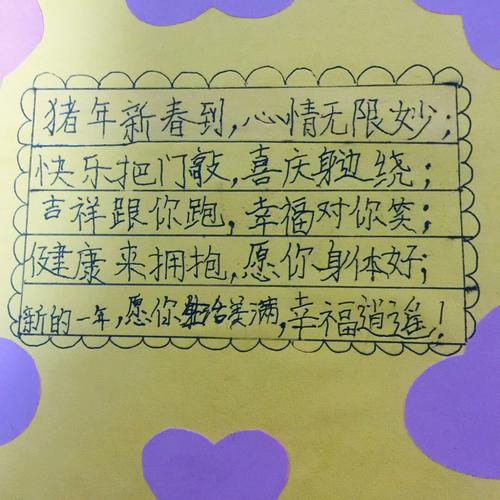 猪年新春到,心情无限妙;
快乐把门敲,喜庆身边绕;
吉祥跟你跑,幸福对你笑;
健康来拥抱,愿你身体好;
新的一年,愿你生活美满,幸福逍遥!